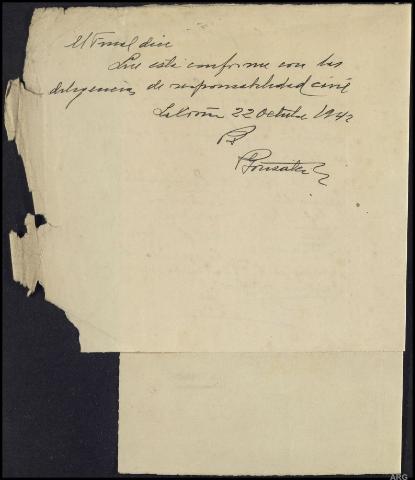 El Fiscal dice
Que está conforme con las
diligencias de responsabilidad civil
22 Octubre 1942
González
ARG